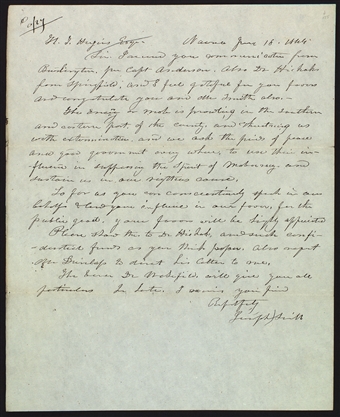 H. T. Hugins Esqr. Nauvoo June 18 - 1844
Sir I received your communication from
Burlington, per Capt Anderson. Also Dr Hickok's
from Springfield, and I feel grateful for your favors
and congratulate you and Mr Smith also.
The enemy or mob is prowling in the southern
and eastern part of the county and threatening us
with extermination, and we ask the friends of peace
and good government every where to use their in-
fluence in suppressing the spirit of mobocracy and
sustain us in our righteous cause.
So far as you can conscientiously speak in our
behalf & lend your influence in our favor, for the
public good, your favors will be highly appreciated
Please show this to Dr Hickok, and such confi-
dential friends as you think proper. Also request
Mr Dunlap to direct his letter to me.
The bearer Dr Wakefield will give you all
particulars In haste I remain your friend
Respectfully
Joseph Smith